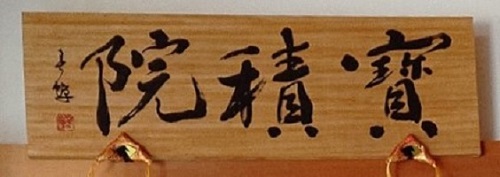 寶積院